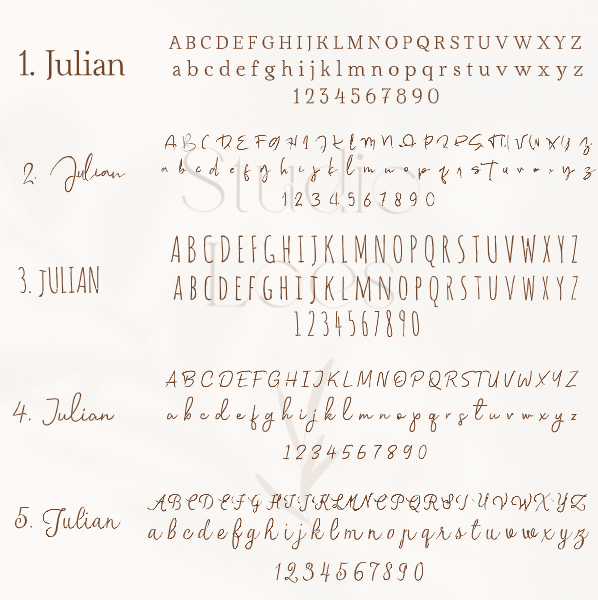 1. Julian
ABCDEFGHIJKLMNOPQRSTUVWXYZ
abcdefghijklmnopqrstuvwxyz
1234567890
2. Julian
ABCDEFGHIJKLMNOPQRSTUVWXYZ
abcdefghijklmnopqrstuvwxyz
1234567890
3. JULIAN
ABCDEFGHIJKLMNOPQRSTUVWXYZ
ABCDEFGHIJKLMNOPQRSTUVWXYZ
1234567890
4. Julian
ABCDEFGHIJKLMNOPQRSTUVWXYZ
abcdefghijklmnopqrstuvwxyz
1234567890
5. Julian
ABCDEFGHIJKLMNOPQRSTUVWXYZ
abcdefghijklmnopqrstuvwxyz
1234567890
Studio